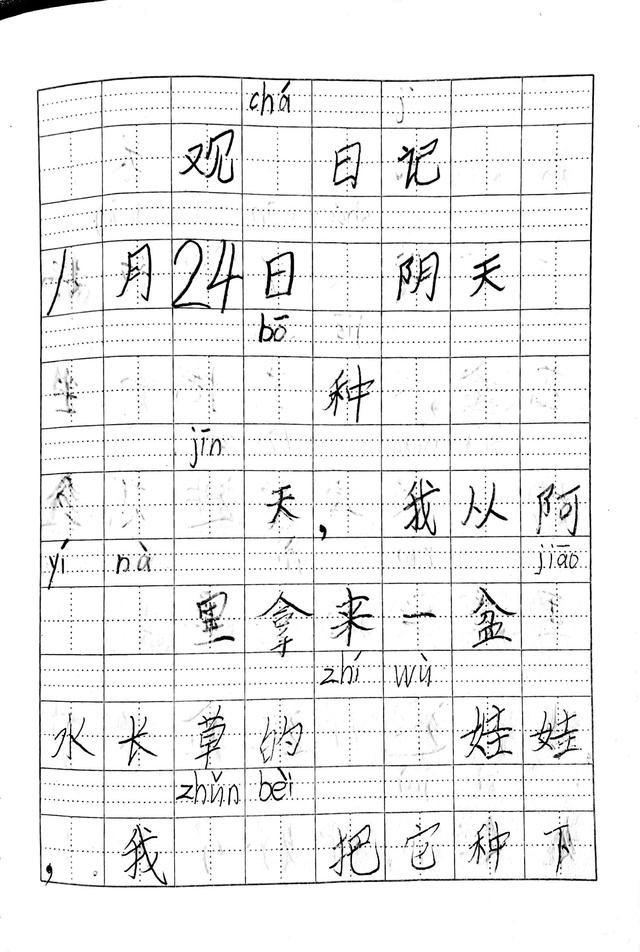 chá jì
观 日记
1月24日 阴天
bō
种
jīn
天，我从阿
yí nà jiāo
里拿来一盆
zhí wù
水长草的 娃娃
zhǔn bèi
，我 把它种下